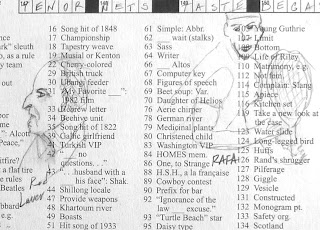 ENOR ETS ASTE BEGA
16 Song hit of 1848
17 Championship
18 Tapestry weave
19 Musial or Kenton
22 Cherry-colored
29 British truck
30 Ubangi feeder
31 "My Favorite ___":
1982 film
33 Hebrew letter
34 Beehive unit
35 Song hit of 1822
39 Gaelic girlfriend
41 Turkish VIP
42 "... no
questions. . ."
43 ". . . husband with a
his face": Shak.
44 Shillong locale
47 Provide weapons
48 Khartoum river
49 Boasts
51 Hit song of 1933
" sleuth
, as a rule
team
": Alcott
"Peace,
tfire?
t a flat tire
e rules
Beatles
, e.g.
Rod
Laver
61 Simple: Abbr.
62 ___ wait (stalks)
63 Sass
64 Writer
65 Altos
67 Computer key
68 Figures of speech
69 Beet soup: Var.
70 Daughter of Helios
76 Aerie chirper
78 German river
79 Medicinal plants
80 Christened child
83 Washington VIP
84 HOMES mem.
86 One, to Strange
88 H.S.H., a la française
89 Cowboy contest
90 Prefix for db
92 "Ignorance of the
law ___ excuse."
93 "Turtle Beach" star
95 Daisy type
RAFA
105 Young Guthrie
107 Limit
108 Bottom
109 Life of Riley
110 Matrimony, e.g.
112 Not fain
114 Complain: Slang
115 Apiece
116 Kitchen set
121 Take a new look at
the case
123 Water slide
124 Long-legged bird
125 Hurts
126 Rand's shrugger
127 Pilferage
128 Giggle
129 Vesicle
131 Constructed
132 Monogram pt.
133 Safety org.
134 Scotland